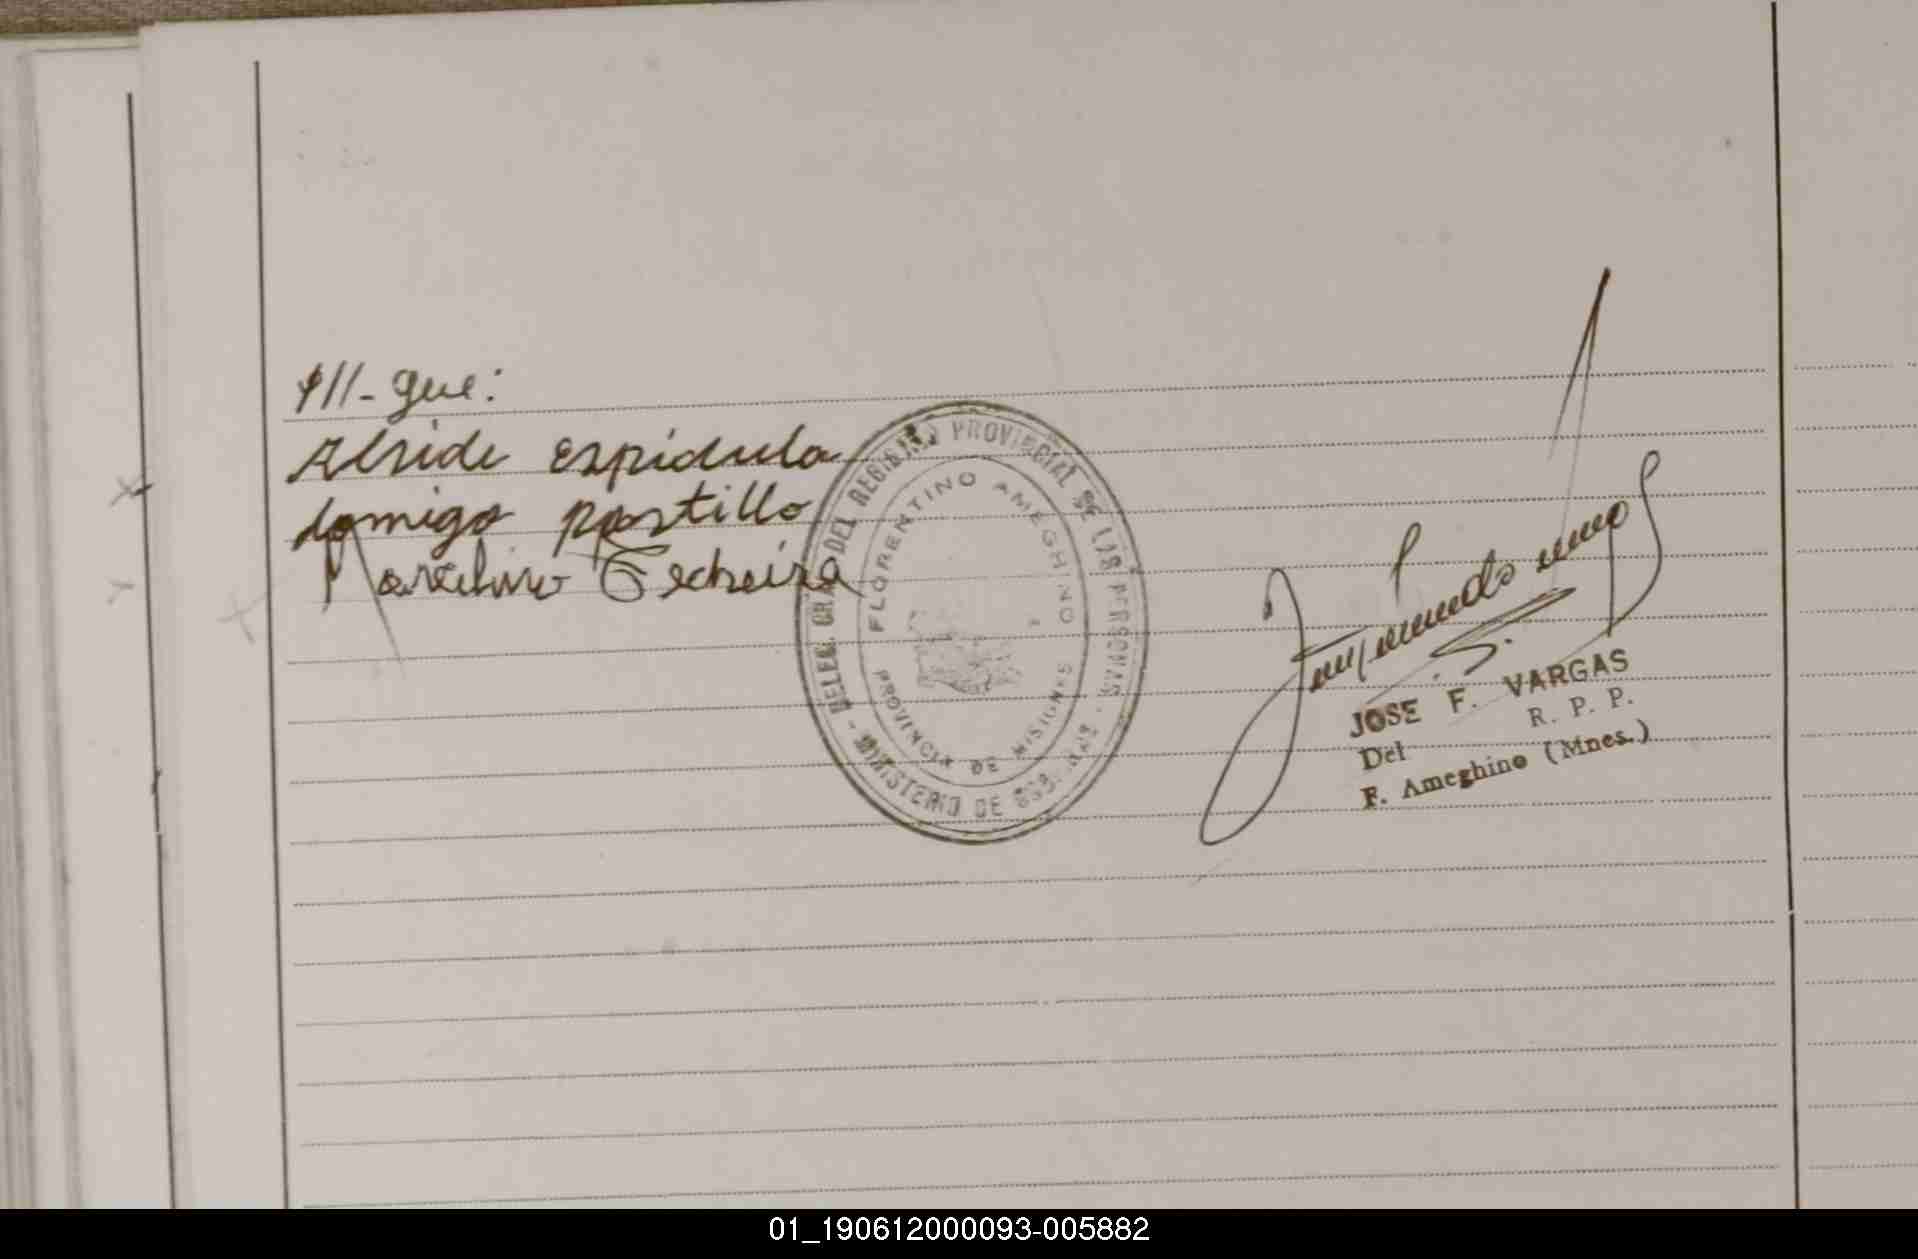 ///-gue:
Alside espidula
domigo portillo
Marcelino Techeira
DELEG. GRAL DEL REGISTRO PROVINCIAL DE LAS PERSONAS
FLORENTINO AMEGHINO
PROVINCIA DE MISIONES
MINISTERIO DE GOBIERNO
JOSE F. VARGAS
Del R. P. P.
F. Ameghino (Mnes.)
01_190612000093-005882